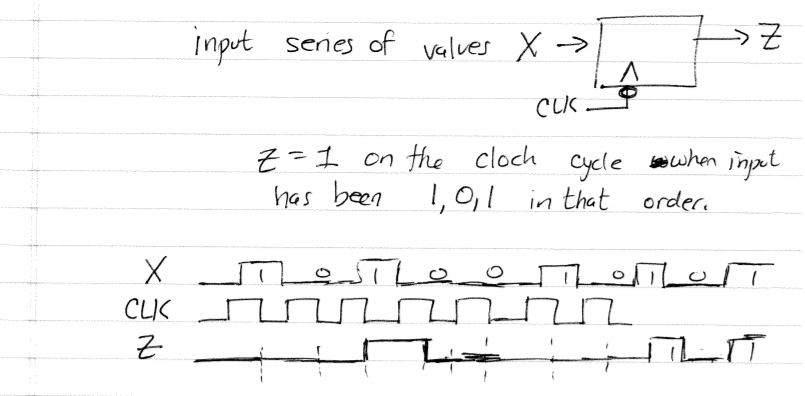 input series of values X → → Z
CLK
Z = 1 on the cloch cycle when input
has been 1, 0, 1 in that order.
X 1 0 1 0 0 1 0 1 0 1
CLK
Z 1 1